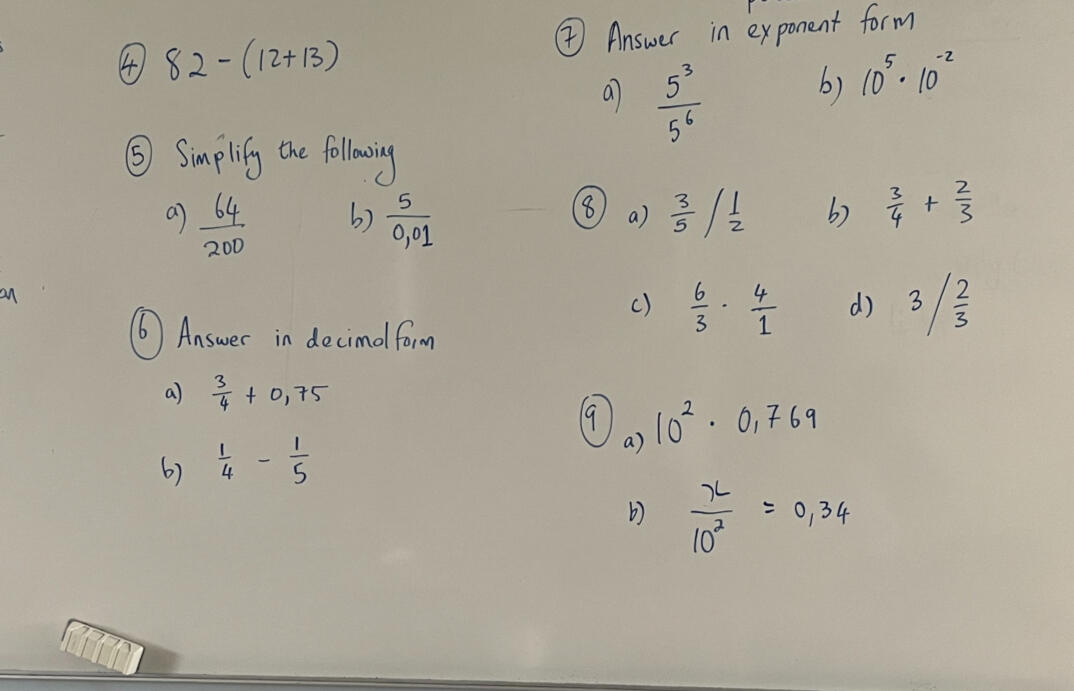 ④ 82 - (12+13)
⑤ Simplify the following
a) 64/200 b) 5/0,01
an
⑥ Answer in decimal form
a) 3/4 + 0,75
b) 1/4 - 1/5
⑦ Answer in exponent form
a) 5³/5⁶ b) 10⁵ · 10⁻²
⑧ a) 3/5 / 1/2 b) 3/4 + 2/3
c) 6/3 · 4/1 d) 3 / 2/3
⑨ a) 10² · 0,769
b) x/10² = 0,34